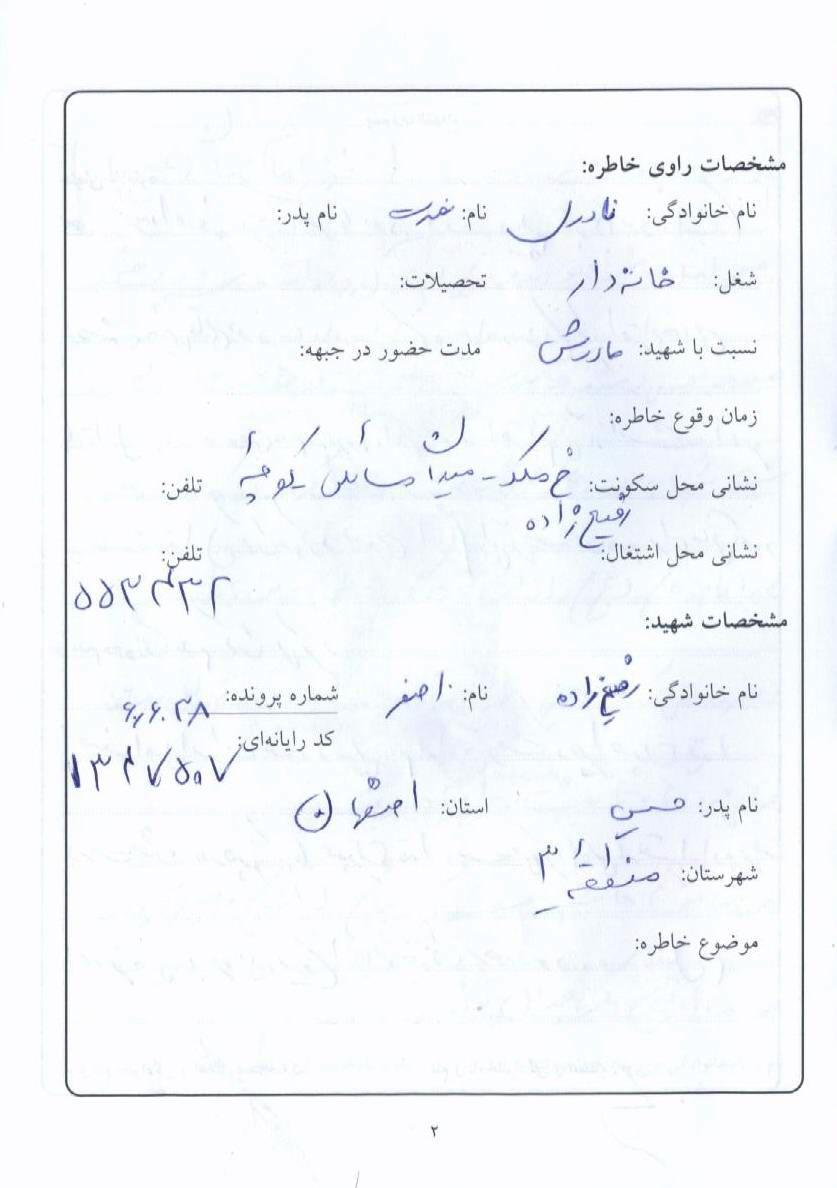 مشخصات راوی خاطره:
نام خانوادگی: نادری نام: نصرت نام پدر:
شغل: خانه دار تحصیلات:
نسبت با شهید: مادرش مدت حضور در جبهه:
زمان وقوع خاطره:
نشانی محل سکونت: خ - میدان کوچه تلفن:
رفیع زاده
نشانی محل اشتغال: تلفن:
مشخصات شهید:
نام خانوادگی: رفیع زاده نام: اصغر شماره پرونده:
کد رایانه‌ای: ۱۳۴۷۵۰۷
نام پدر: حسین استان: اصفهان
شهرستان: منطقه ۳
موضوع خاطره:
۲